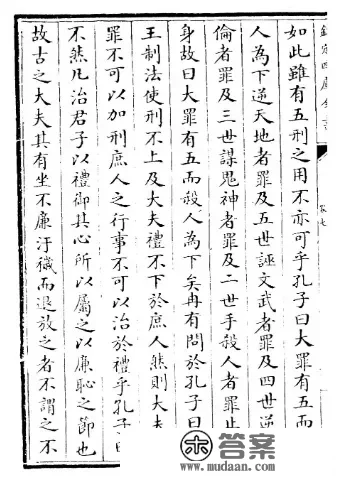 欽定四庫全書
卷七
如此雖有五刑之用不亦可乎孔子曰大罪有五而
人為下逆天地者罪及五世誣文武者罪及四世逆
倫者罪及三世謀鬼神者罪及二世手殺人者罪止
身故曰大罪有五而殺人為下矣冉有問於孔子曰
王制法使刑不上及大夫禮不下於庶人然則大夫
罪不可以加刑庶人之行事不可以治於禮乎孔子曰
不然凡治君子以禮御其心所以屬之以廉恥之節也
故古之大夫其有坐不廉汙穢而退放之者不謂之不
答案
www.mudaan.com